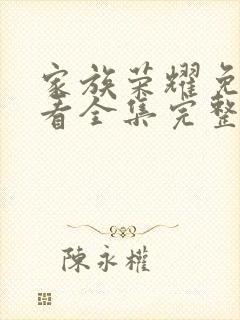 家族荣耀免
看全集完整
陳永權